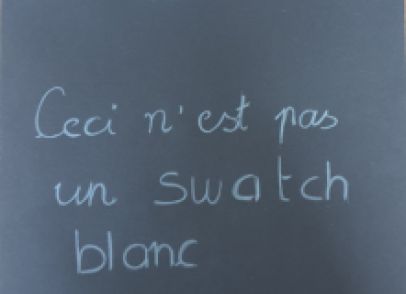 Ceci n'est pas
un swatch
blanc